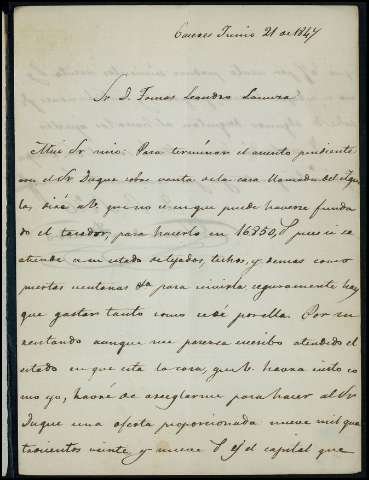 Caceres Junio 21 de 1847
Sr D. Tomas Leandro
Mui Sr mio: Para terminar el asunto pendiente
con el Sr Duque sobre venta de la casa llamada del
diré a V. que no se en que puede haverse funda
do el tasador, para hacerlo en 16850, pues si se
atiende a su estado de tejados, techos, y demas como
puertas ventanas &a para vivirla seguramente hay
que gastar tanto como se dé por ella. Por su
aunque me paresca atendido el
estado en que esta la casa, q.e V. havra visto co
mo yo, havré de arreglarme para hacer al Sr
Duque una oferta proporcionada nueve mil qua
trocientos veinte y nueve el capital que